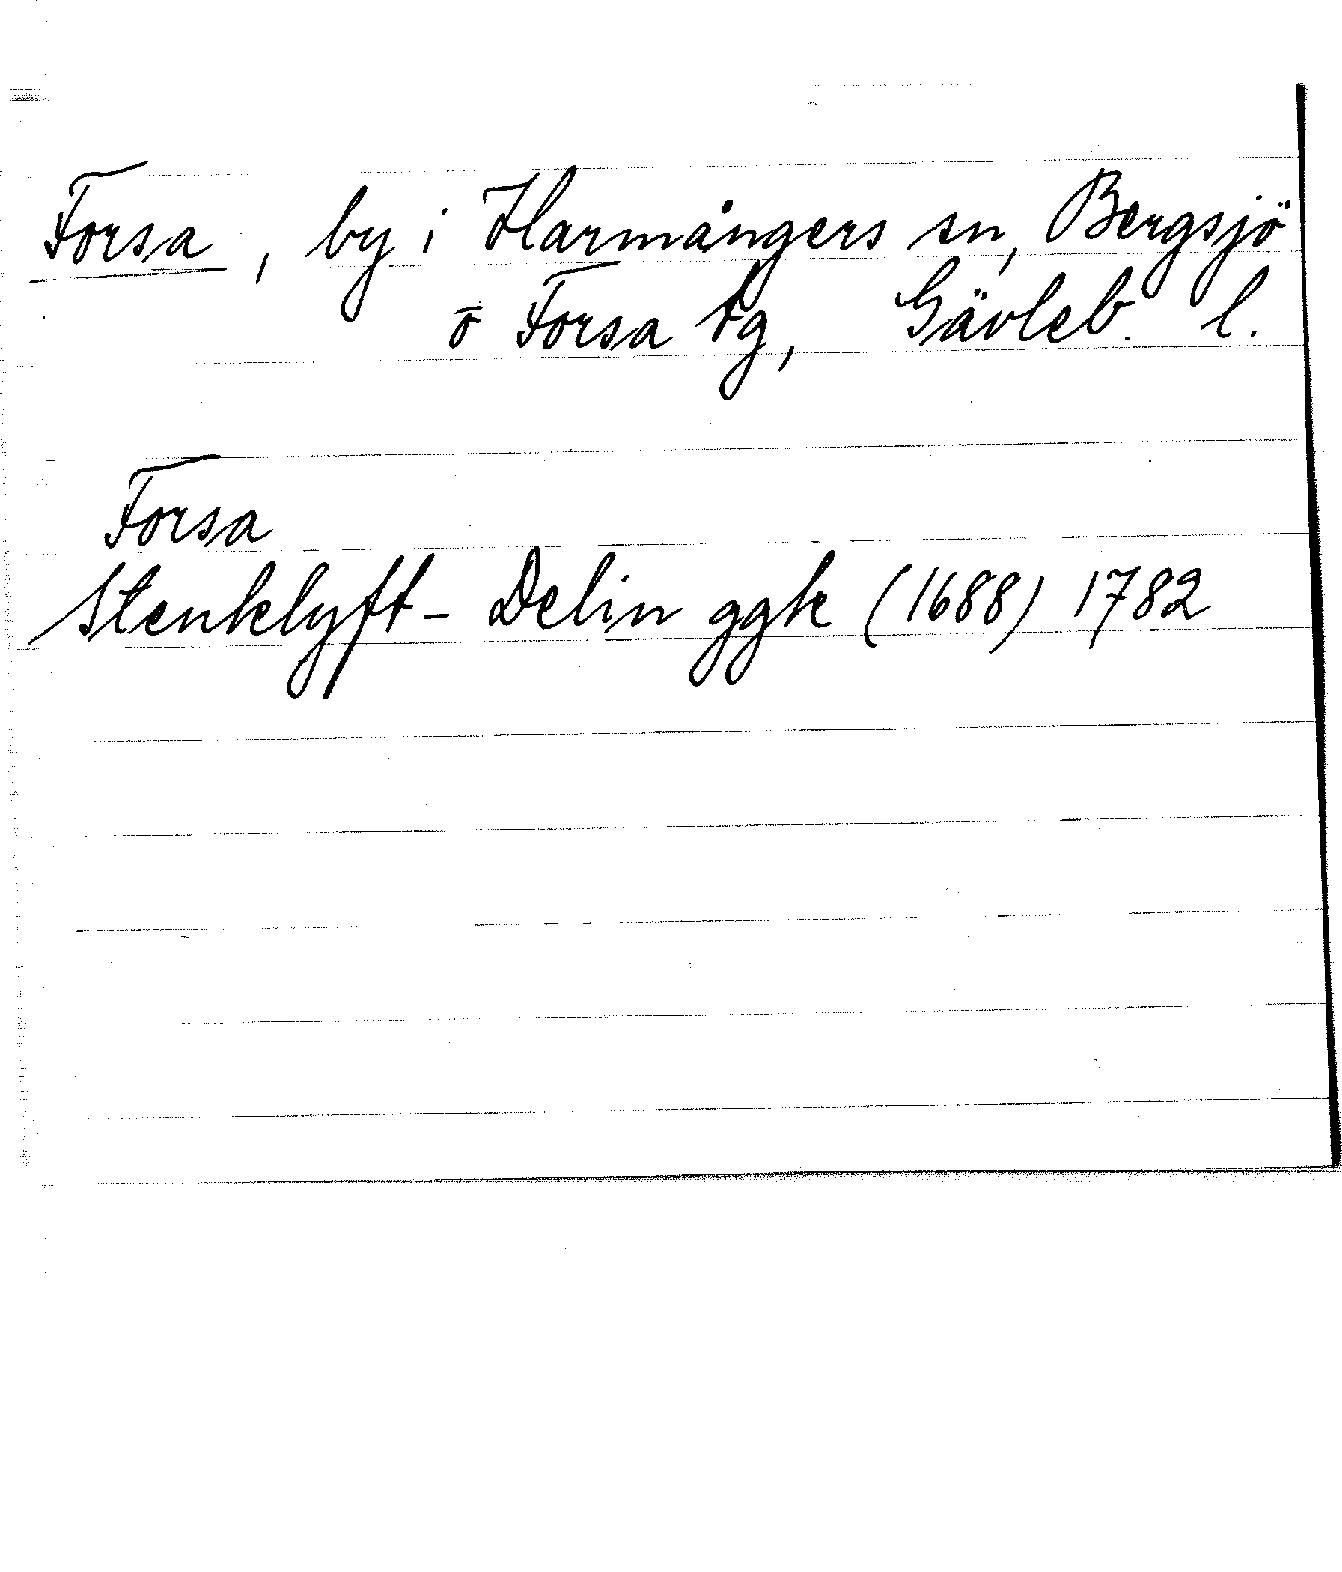 Forsa, by i Harmångers sn, Bergsjö
o Forsa tg, Gävleb. l.
Forsa
Stenklyft- Delin ggk (1688) 1782